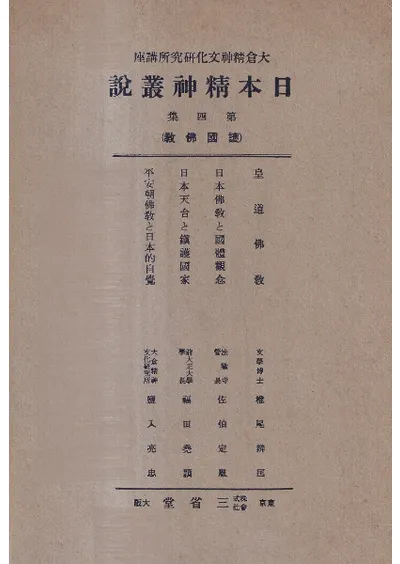 大倉精神文化研究所講座
日本精神叢說
第四集
(護國佛教)
皇道佛教
文學博士 椎尾辨匡
日本佛教と國體觀念
法隆寺管長 佐伯定胤
日本天台と鎭護國家
前大正大學學長 福田堯穎
平安朝佛教と日本的自覺
大倉精神文化研究所 鹽入亮忠
東京 株式會社 三省堂 大阪